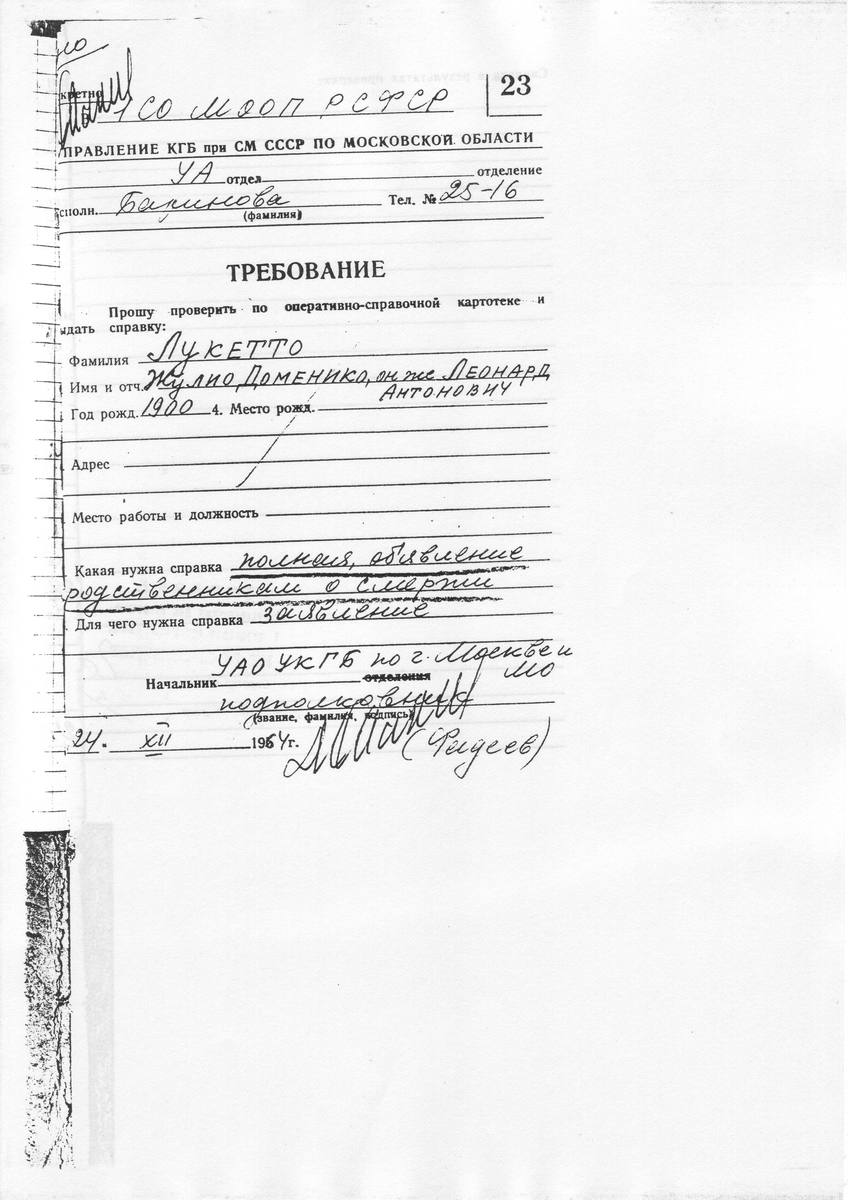 кретно
23
1 СО МООП РСФСР
ПРАВЛЕНИЕ КГБ при СМ СССР ПО МОСКОВСКОЙ ОБЛАСТИ
УА отдел отделение
сполн. Баринова Тел. № 25-16
(фамилия)
ТРЕБОВАНИЕ
Прошу проверить по оперативно-справочной картотеке и
ыдать справку:
Фамилия ЛУКЕТТО
Имя и отч. ЖУЛИО, ДОМЕНИКО, он же ЛЕОНАРД
АНТОНОВИЧ
Год рожд. 1900 4. Место рожд.
Адрес
Место работы и должность
Какая нужна справка полная, объявление
родственникам о смерти
Для чего нужна справка заявление
УАО УКГБ по г. Москве и
Начальник отделения МО
подполковник
(звание, фамилия, подпись)
24. XII 1964 г. (Фадеев)